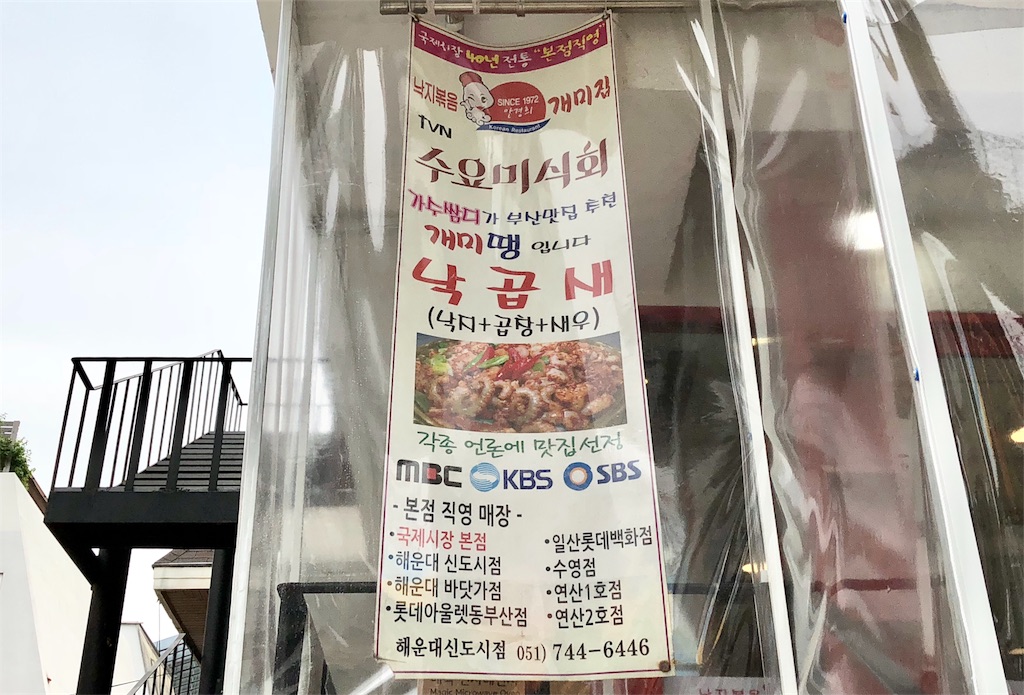 국제시장 40년 전통 "본점직영"
낙지볶음 SINCE 1972 안경희 Korean Restaurant 개미집
tvN
수요미식회
가수쌈디가 부산맛집 추천
개미땡 입니다
낙곱새
(낙지+곱창+새우)
각종 언론에 맛집선정
MBC KBS SBS
- 본점 직영 매장 -
•국제시장 본점
•해운대 신도시점
•해운대 바닷가점
•롯데아울렛동부산점
•일산롯데백화점
•수영점
•연산1호점
•연산2호점
해운대신도시점 051) 744-6446
Magic Microwave Oven
낙지볶음